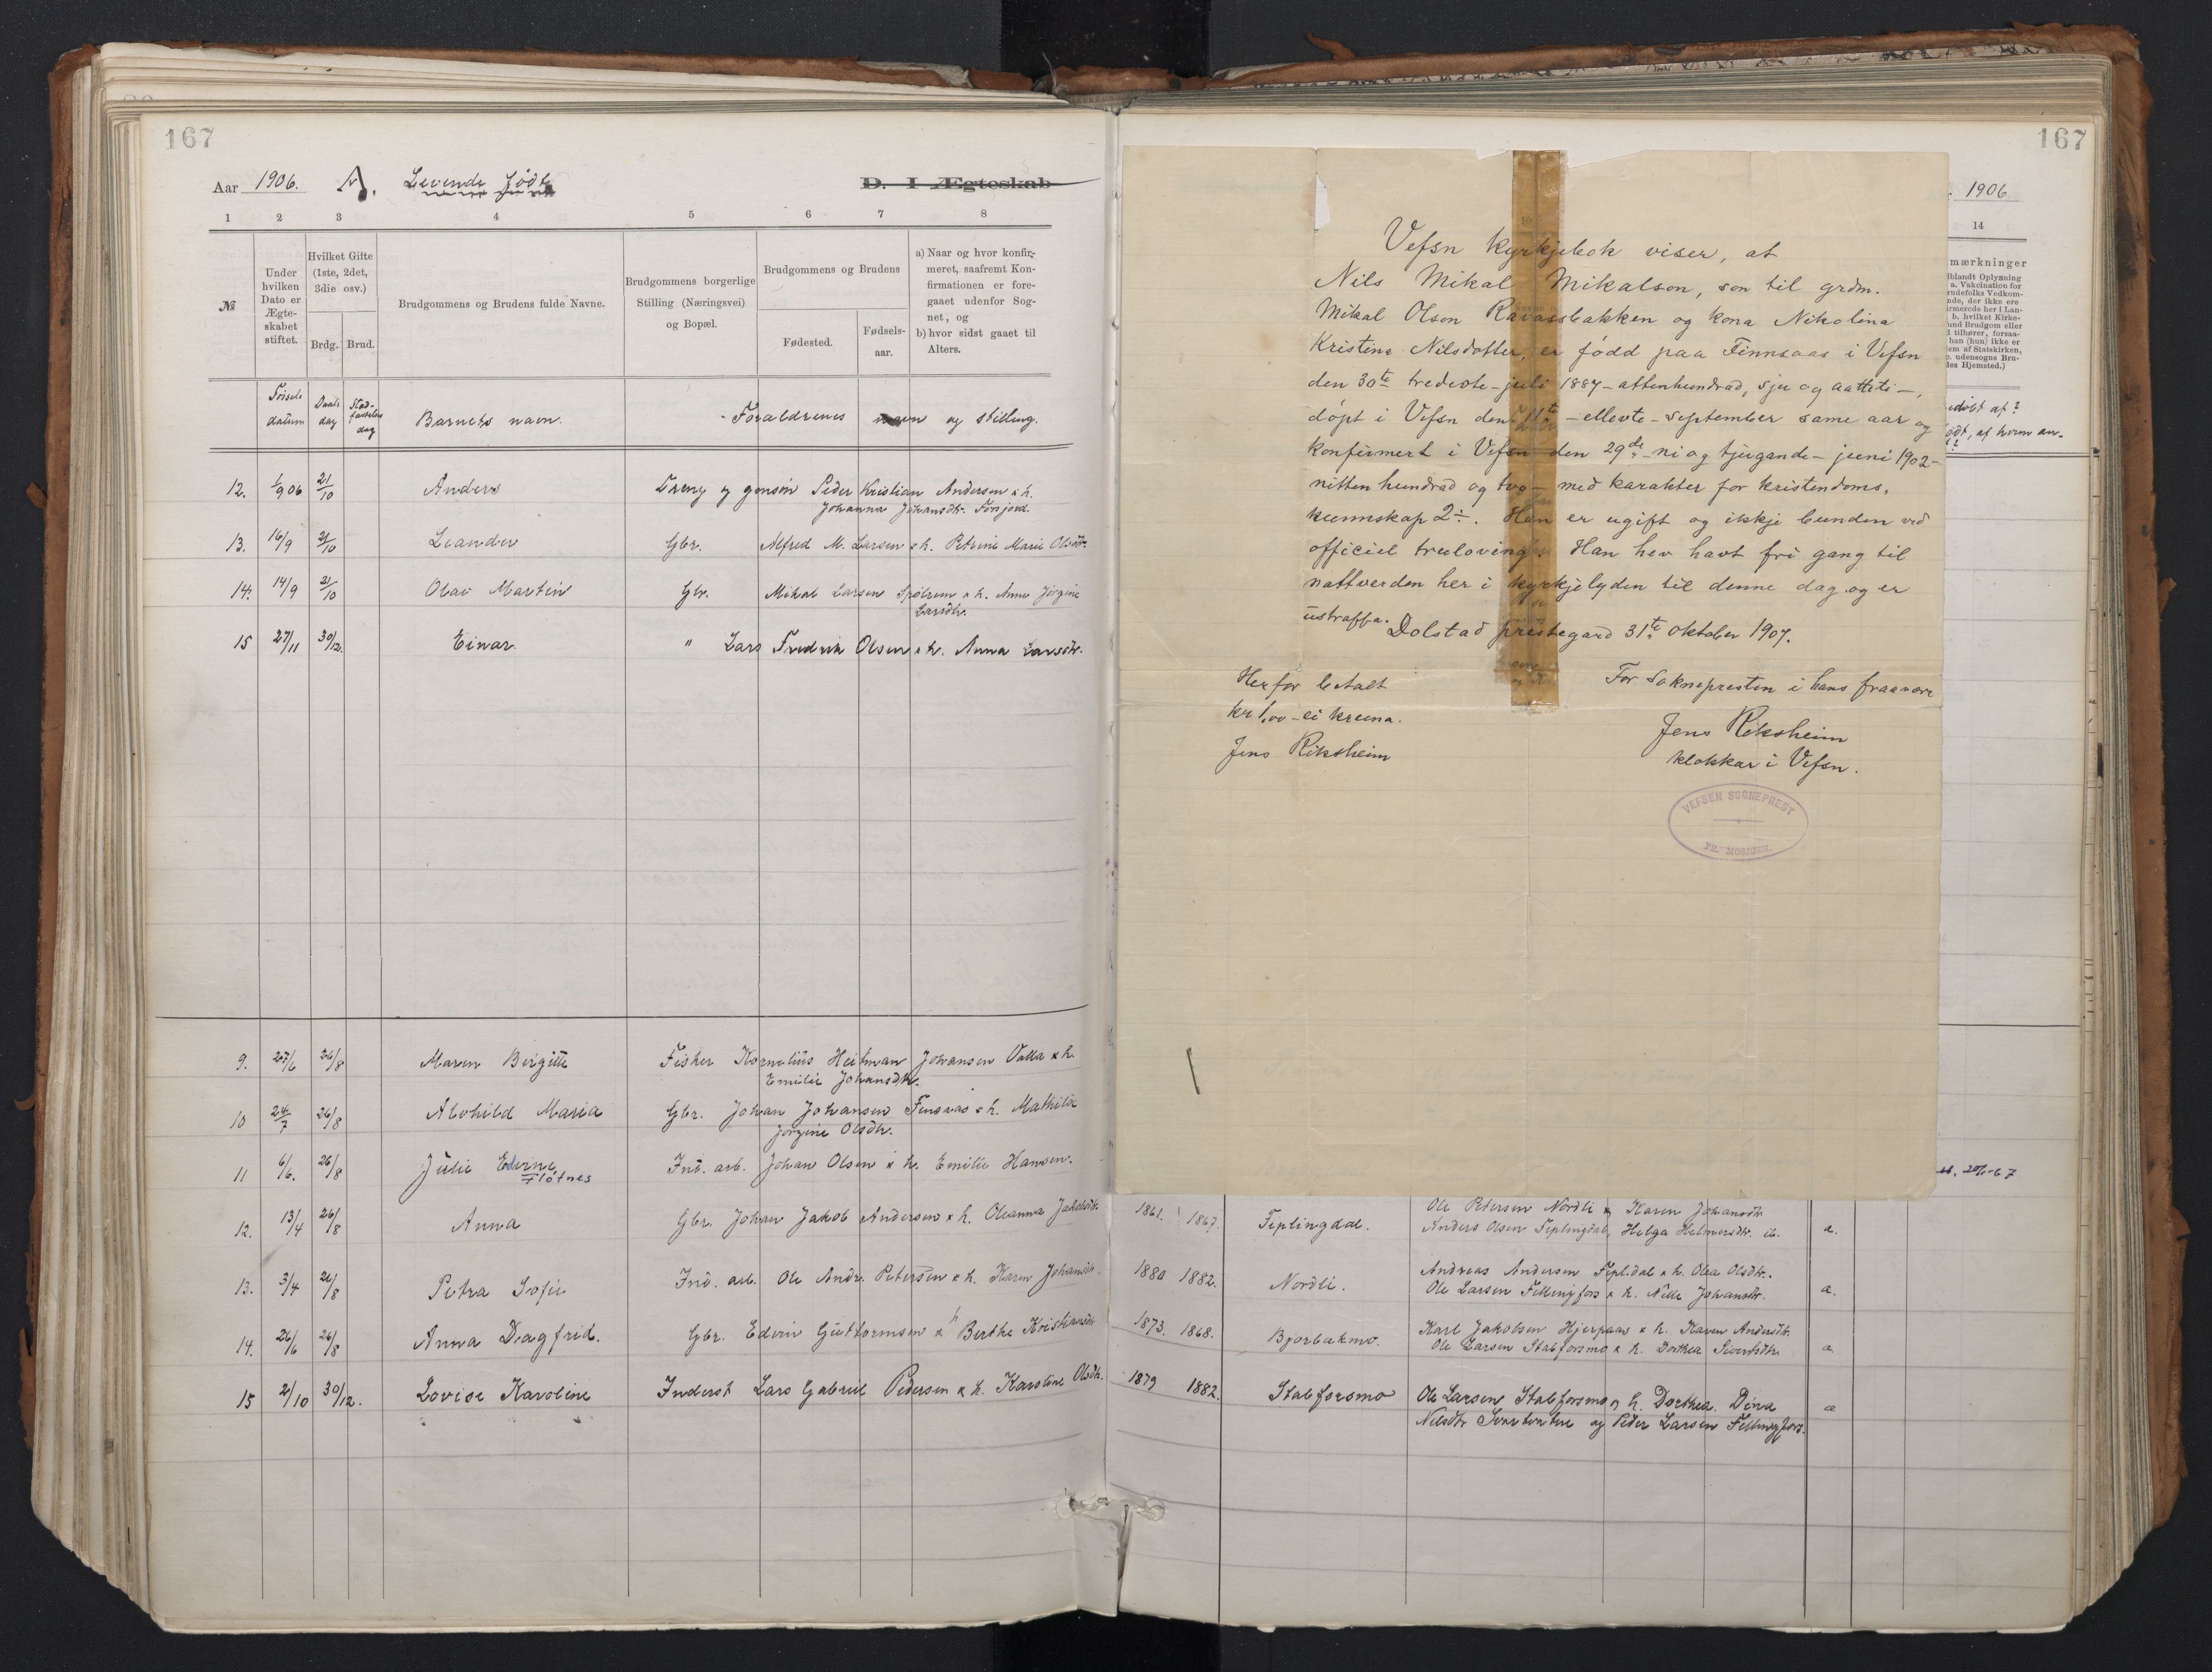 167
Aar 1906. A. Levende fødte D. I Ægteskab
1 2 3 4 5 6 7 8
№
Under hvilken Dato er Ægteskabet stiftet.
Hvilket Gifte (1ste, 2det, 3die osv.)
Brdg. Brud.
Brudgommens og Brudens fulde Navne.
Brudgommens borgerlige Stilling (Næringsvei) og Bopæl.
Brudgommens og Brudens
Fødested.
Fødsels-aar.
a) Naar og hvor konfir-
meret, saafremt Kon-
firmationen er fore-
gaaet udenfor Sog-
net, og
b) hvor sidst gaaet til
Alters.
Fødsels datum Daabs dag Stad-fæstelses dag Barnets navn. Forældrenes navn og stilling.
12. 1/9 06 21/10 Anders Dreng og gmsøn Peder Kristian Andersen & h.
Johanna Johansdtr. Forsjord.
13. 16/9 21/10 Leander Gbr. Alfred M. Larsen & h. Petrine Marie Olsdtr.
14. 14/9 21/10 Olav Martin Gbr. Mikal Larsen & h. Anne Jørgine
Larsdtr.
15 27/11 30/12. Einar. " Lars Fredrik Olsen & h. Anna Larsdtr.
9. 27/6 26/8 Maren Birgitte Fisker Kornelius Heitman Johansen Valla & h.
Emilie Johansdtr.
10 24/7 26/8 Alvhild Maria Gbr. Johan Johansen Finsaas & h. Mathilde
Jørgine Olsdtr.
11 6/6. 26/8 Julie Flótnes Ind. arb. Johan Olsen & h. Emilie Hansen.
12. 13/4 26/8 Anna Gbr. Johan Jakob Andersen & h. Oleanna Jakobsdtr.
13. 3/4 26/8 Petra Sofie Ind. arb. Ole Andr. Petersen & h. Karen Johansdtr.
14. 26/6 26/8 Anna Dagfrid. Gbr. Edvin Guttormsen & h Berthe Kristiansdtr
15 2/10 30/12. Lovise Karoline Inderst Lars Gabriel Pedersen & h. Karoline Olsdtr.
167
1906
14
mærkninger
iblandt Oplysning
a. Vakcination for
rudefolks Vedkom-
nde, der ikke ere
irmerede her i Lan-
b. hvilket Kirke-
und Brudgom eller
d tilhører, forsaa-
han (hun) ikke er
em af Statskirken,
c. udensogns Bru-
des Hjemsted.)
døbt af?
født, af hvem an-
Vefsn kyrkjebok viser, at
Nils Mikal Mikalson, son til grdm.
Mikal Olson Ravassbakken og kona Nikolina
Kristine Nilsdotter, er fødd paa Finnsaas i Vefsn
den 30te tredevte - juli 1887 - attenhundrad, sju og aatteti -,
døpt i Vefsn den 11te - ellevte - september same aar og
konfirmert i Vefsn den 29de - ni og tjugande - juni 1902 -
nitten hundrad og tvo - med karakter for kristendoms-
kunnskap 2÷. Han er ugift og ikkje bunden ved
officiel truloving. Han hev havt fri gang til
nattverden her i kyrkjelyden til denne dag og er
ustraffa.
Dolstad prestegard 31te oktober 1907.
Herfor betalt
kr 1,00 - ei kruna.
Jens Riksheim
For soknepresten i hans fraavære
Jens Riksheim
klokkar i Vefsn.
VEFSEN SOGNEPREST
PR. MOSJØEN.
20/6-67
Ole Petersen Nordli & Karen Johansdtr
1861. 1867. Feplingdal. Anders Olsen Feplingdal, Helga Helmersdtr. ib. a.
Andreas Andersen Fepldal & h. Olea Olsdtr.
1880 1882. Nordli. Ole Larsen Fellingfors & h. Nille Johansdtr. a.
Karl Jakobsen Hjerpaas & h. Karen Andersdtr.
1873. 1868. Bjorbakmo. Ole Larsen Stabforsmo & h. Dorthea Sivertsdtr a
1879 1882. Stabforsmo Ole Larsen Stabforsmo & h. Dorthea. Dina a
Nilsdtr Svartvatne og Peder Larsen Fellingfors.